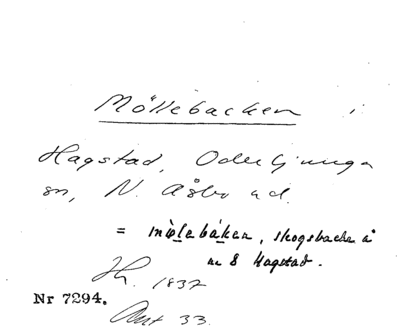 Möllebacken
Hagstad, Oderljunga
sn, N. Åsbo hd.
= mø̀lebákan, skogsbacke å
nr 8 Hagstad.
1837
Nr 7294.
Ant 33.